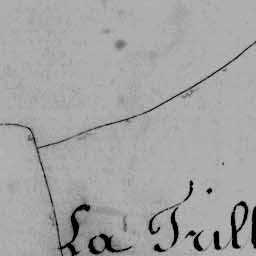 La Trill